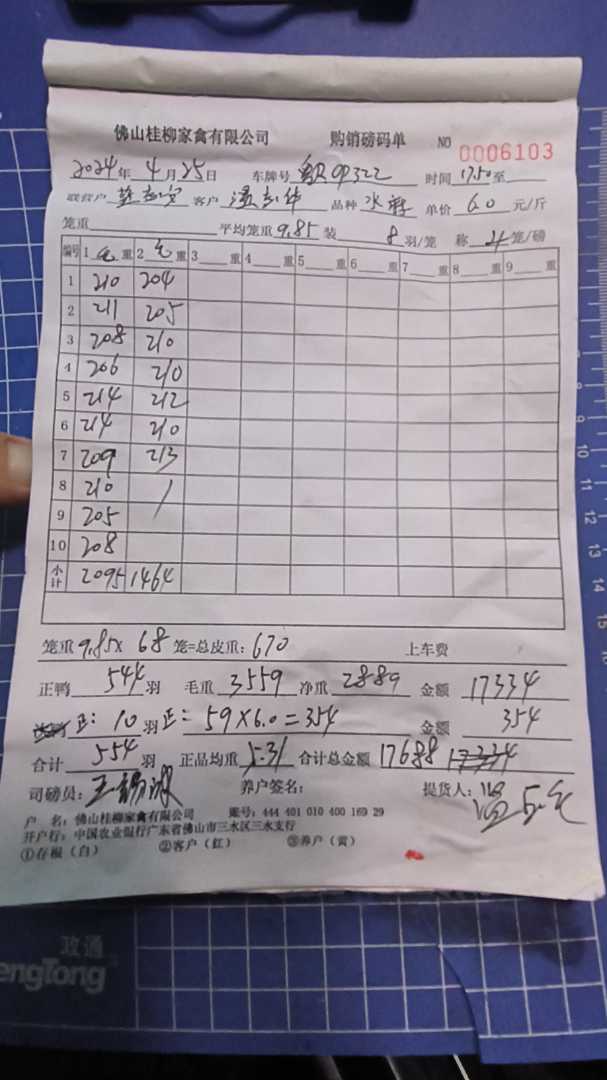 佛山桂柳家禽有限公司 购销磅码单 NO 0006103
2024年 4月25日 车牌号 0P322 时间 17.50至
联营户 客户 温 华 品种 水 单价 6.0 元/斤
笼重 平均笼重 9.85 装 8 羽/笼 称 4笼/磅
编号 1 毛 重 2 毛 重 3 重 4 重 5 重 6 重 7 重 8 重 9 重
1 210 204
2 211 205
3 208 210
4 206 210
5 214 212
6 214 210
7 209 213
8 210 /
9 205
10 208
小计 2095 1464
笼重 9.85× 68 笼=总皮重: 670 上车费
正鸭 544 羽 毛重 3559 净重 2889 金额 17334
正: 10 羽 正: 59×6.0=354 金额 354
合计 554 羽 正品均重 5.31 合计总金额 17688 17334
司磅员: 王 养户签名: 提货人: 温
户 名: 佛山桂柳家禽有限公司 账号: 444 401 010 400 169 29
开户行: 中国农业银行广东省佛山市三水区三水支行
①存根(白) ②客户(红) ③养户(黄)
政通
engTong
10
11
12
13
14
15